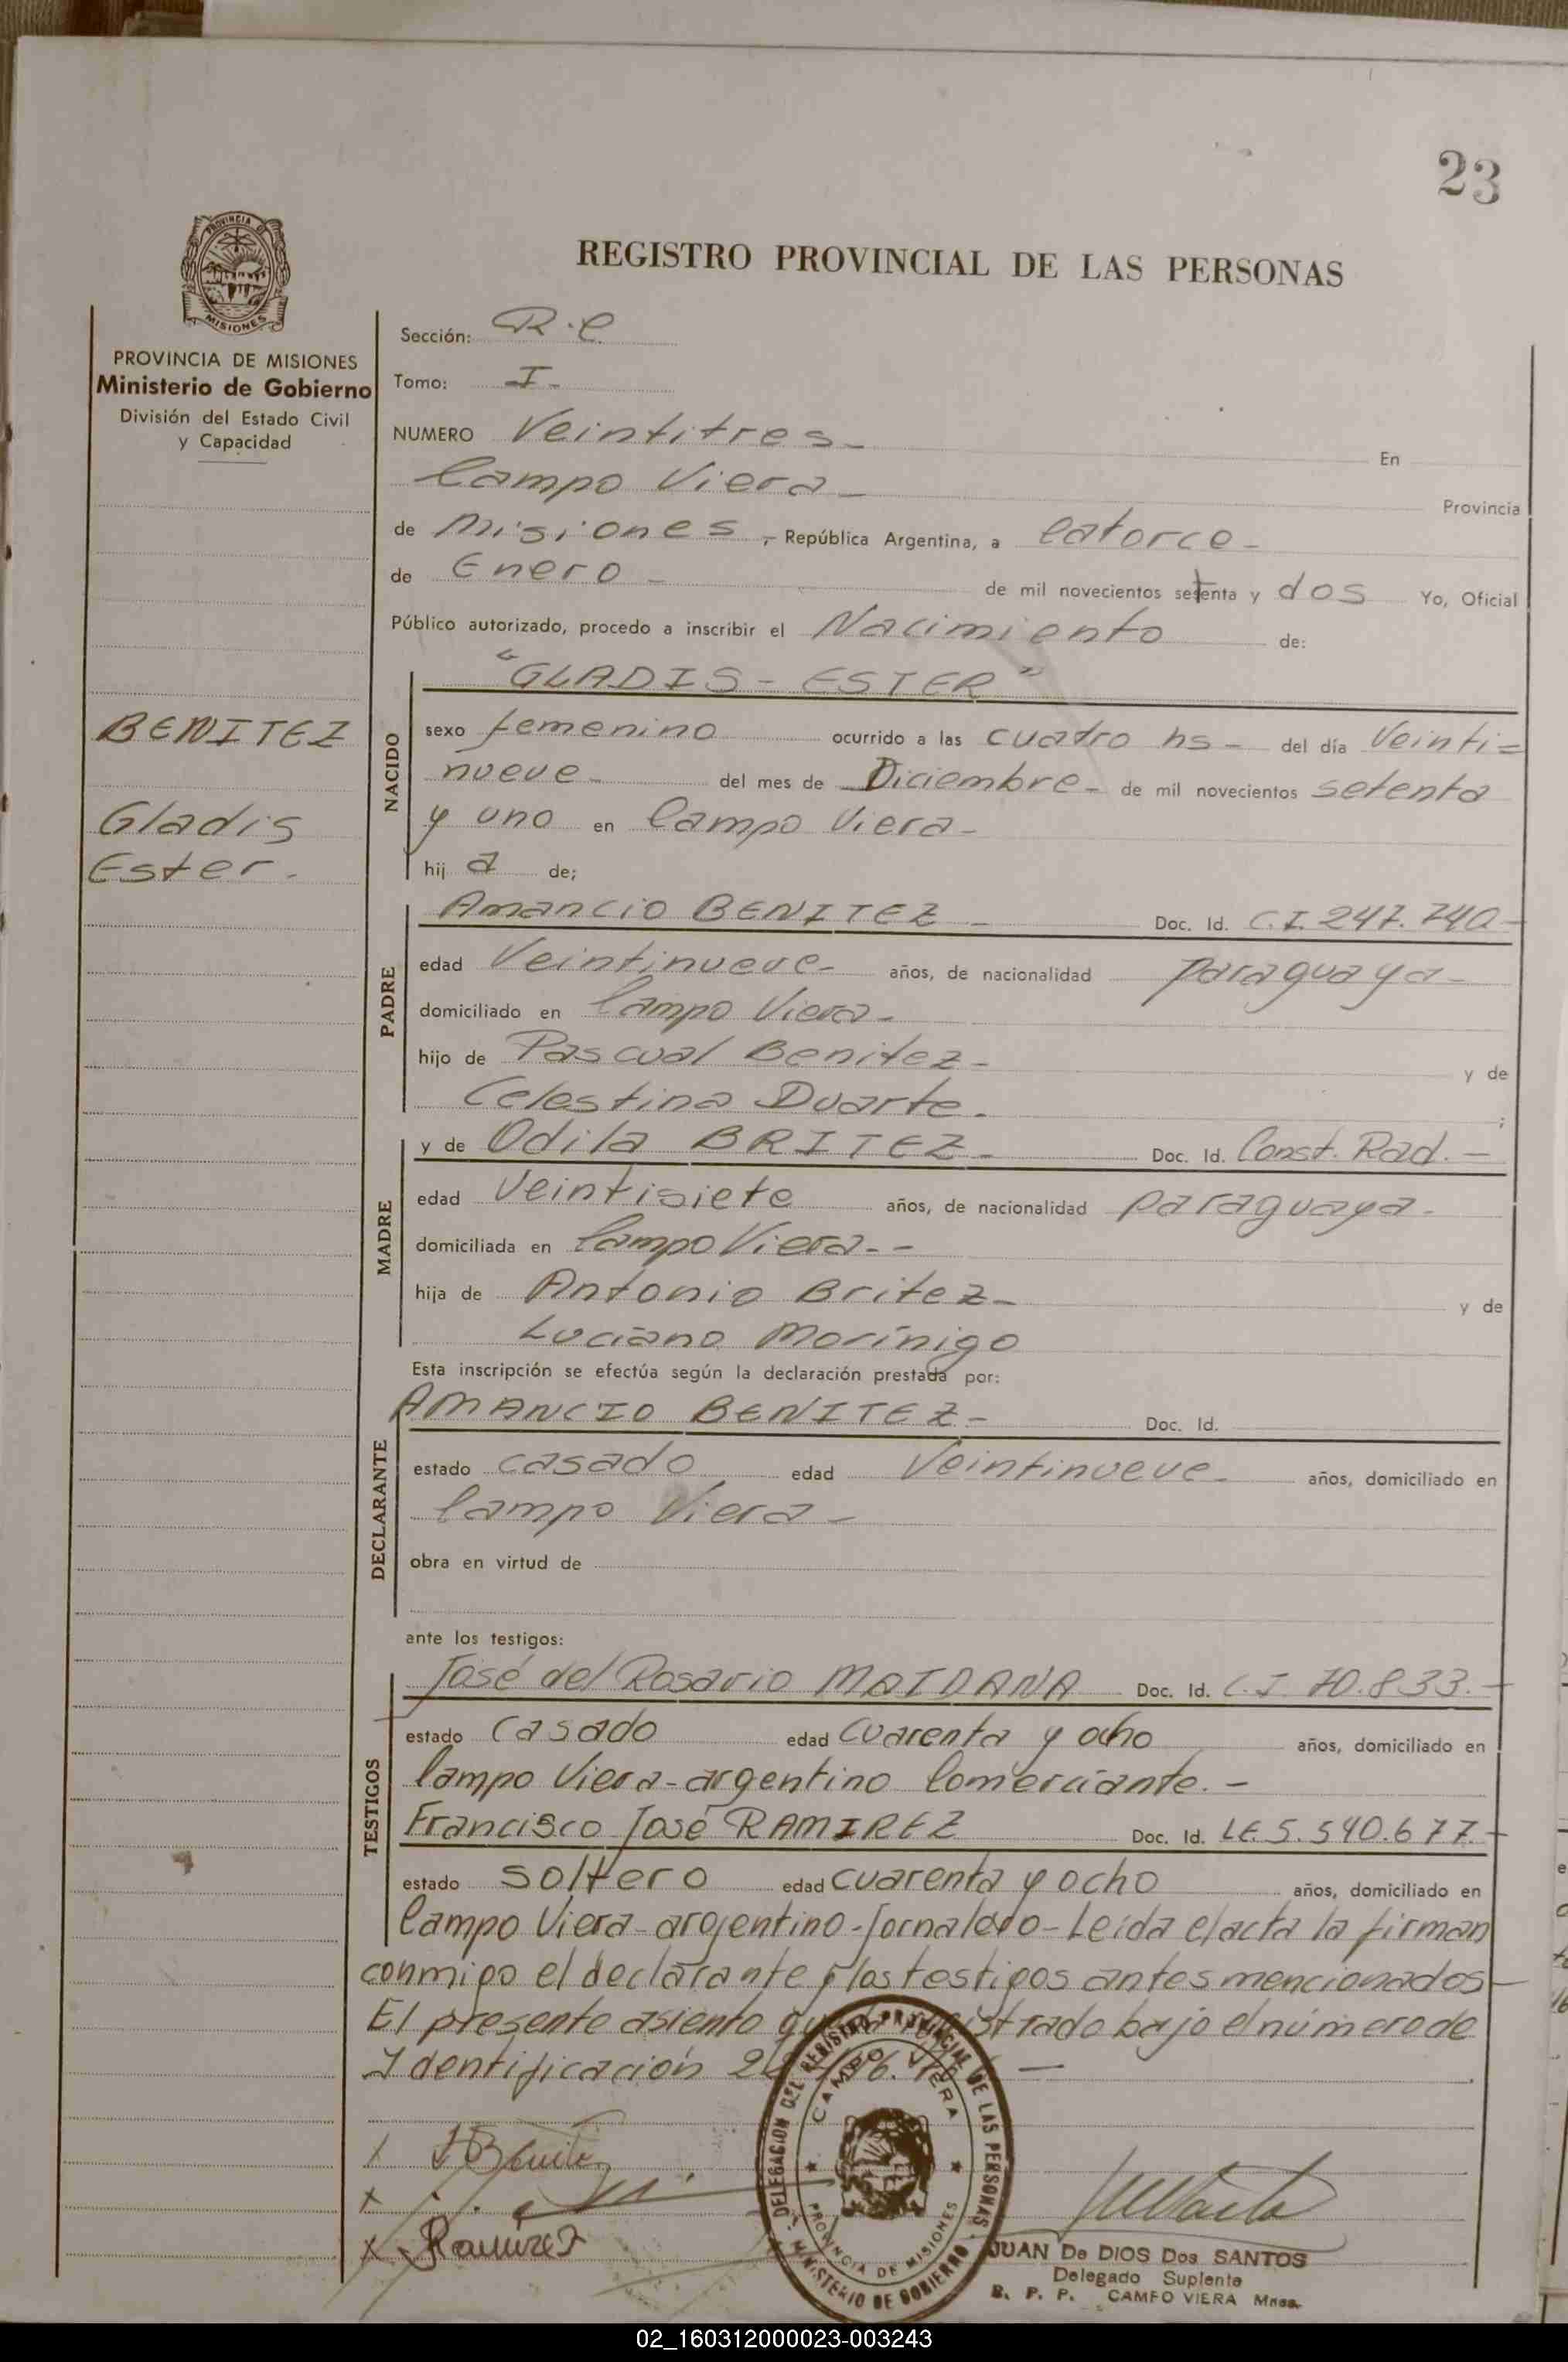 23
PROVINCIA DE
MISIONES
REGISTRO PROVINCIAL DE LAS PERSONAS
PROVINCIA DE MISIONES
Ministerio de Gobierno
División del Estado Civil
y Capacidad
BENITEZ
Gladis
Ester.
Sección: R.C.
Tomo: I-
NUMERO Veintitres- En
Campo Viera- Provincia
de Misiones, República Argentina, a catorce-
de Enero- de mil novecientos setenta y dos Yo, Oficial
Público autorizado, procedo a inscribir el Nacimiento de:
NACIDO
"GLADIS-ESTER"
sexo femenino ocurrido a las cuatro hs- del día Veinti=
nueve- del mes de Diciembre- de mil novecientos setenta
y uno en Campo Viera-
hij a de;
PADRE
Amancio BENITEZ- Doc. Id. C.I. 247.740-
edad Veintinueve- años, de nacionalidad paraguaya-
domiciliado en Campo Viera-
hijo de Pascual Benitez- y de
Celestina Duarte. ;
MADRE
y de Odila BRITEZ- Doc. Id. Const. Rad.-
edad Veintisiete años, de nacionalidad paraguaya-
domiciliada en Campo Viera.--
hija de Antonio Britez- y de
Luciana Morínigo
Esta inscripción se efectúa según la declaración prestada por:
DECLARANTE
AMANCIO BENITEZ- Doc. Id.
estado casado edad Veintinueve- años, domiciliado en
Campo Viera-
obra en virtud de
ante los testigos:
TESTIGOS
José del Rosario MAIDANA Doc. Id. C.I 70.833.-
estado casado edad Cuarenta y ocho años, domiciliado en
Campo Viera-argentino Comerciante.-
Francisco José RAMIREZ Doc. Id. LE. 5.540.677.-
estado soltero edad cuarenta y ocho años, domiciliado en
Campo Viera-argentino-Jornalero-Leída el acta la firman
conmigo el declarante y los testigos antes mencionados-
El presente asiento bajo el número de
Identificación
DELEGACION DEL REGISTRO PROVINCIAL DE LAS PERSONAS
CAMPO VIERA
PROVINCIA DE MISIONES
MINISTERIO DE GOBIERNO
x
x
x Ramirez
JUAN De DIOS Dos SANTOS
Delegado Suplente
R. P. P. CAMPO VIERA Mnes.
02_160312000023-003243